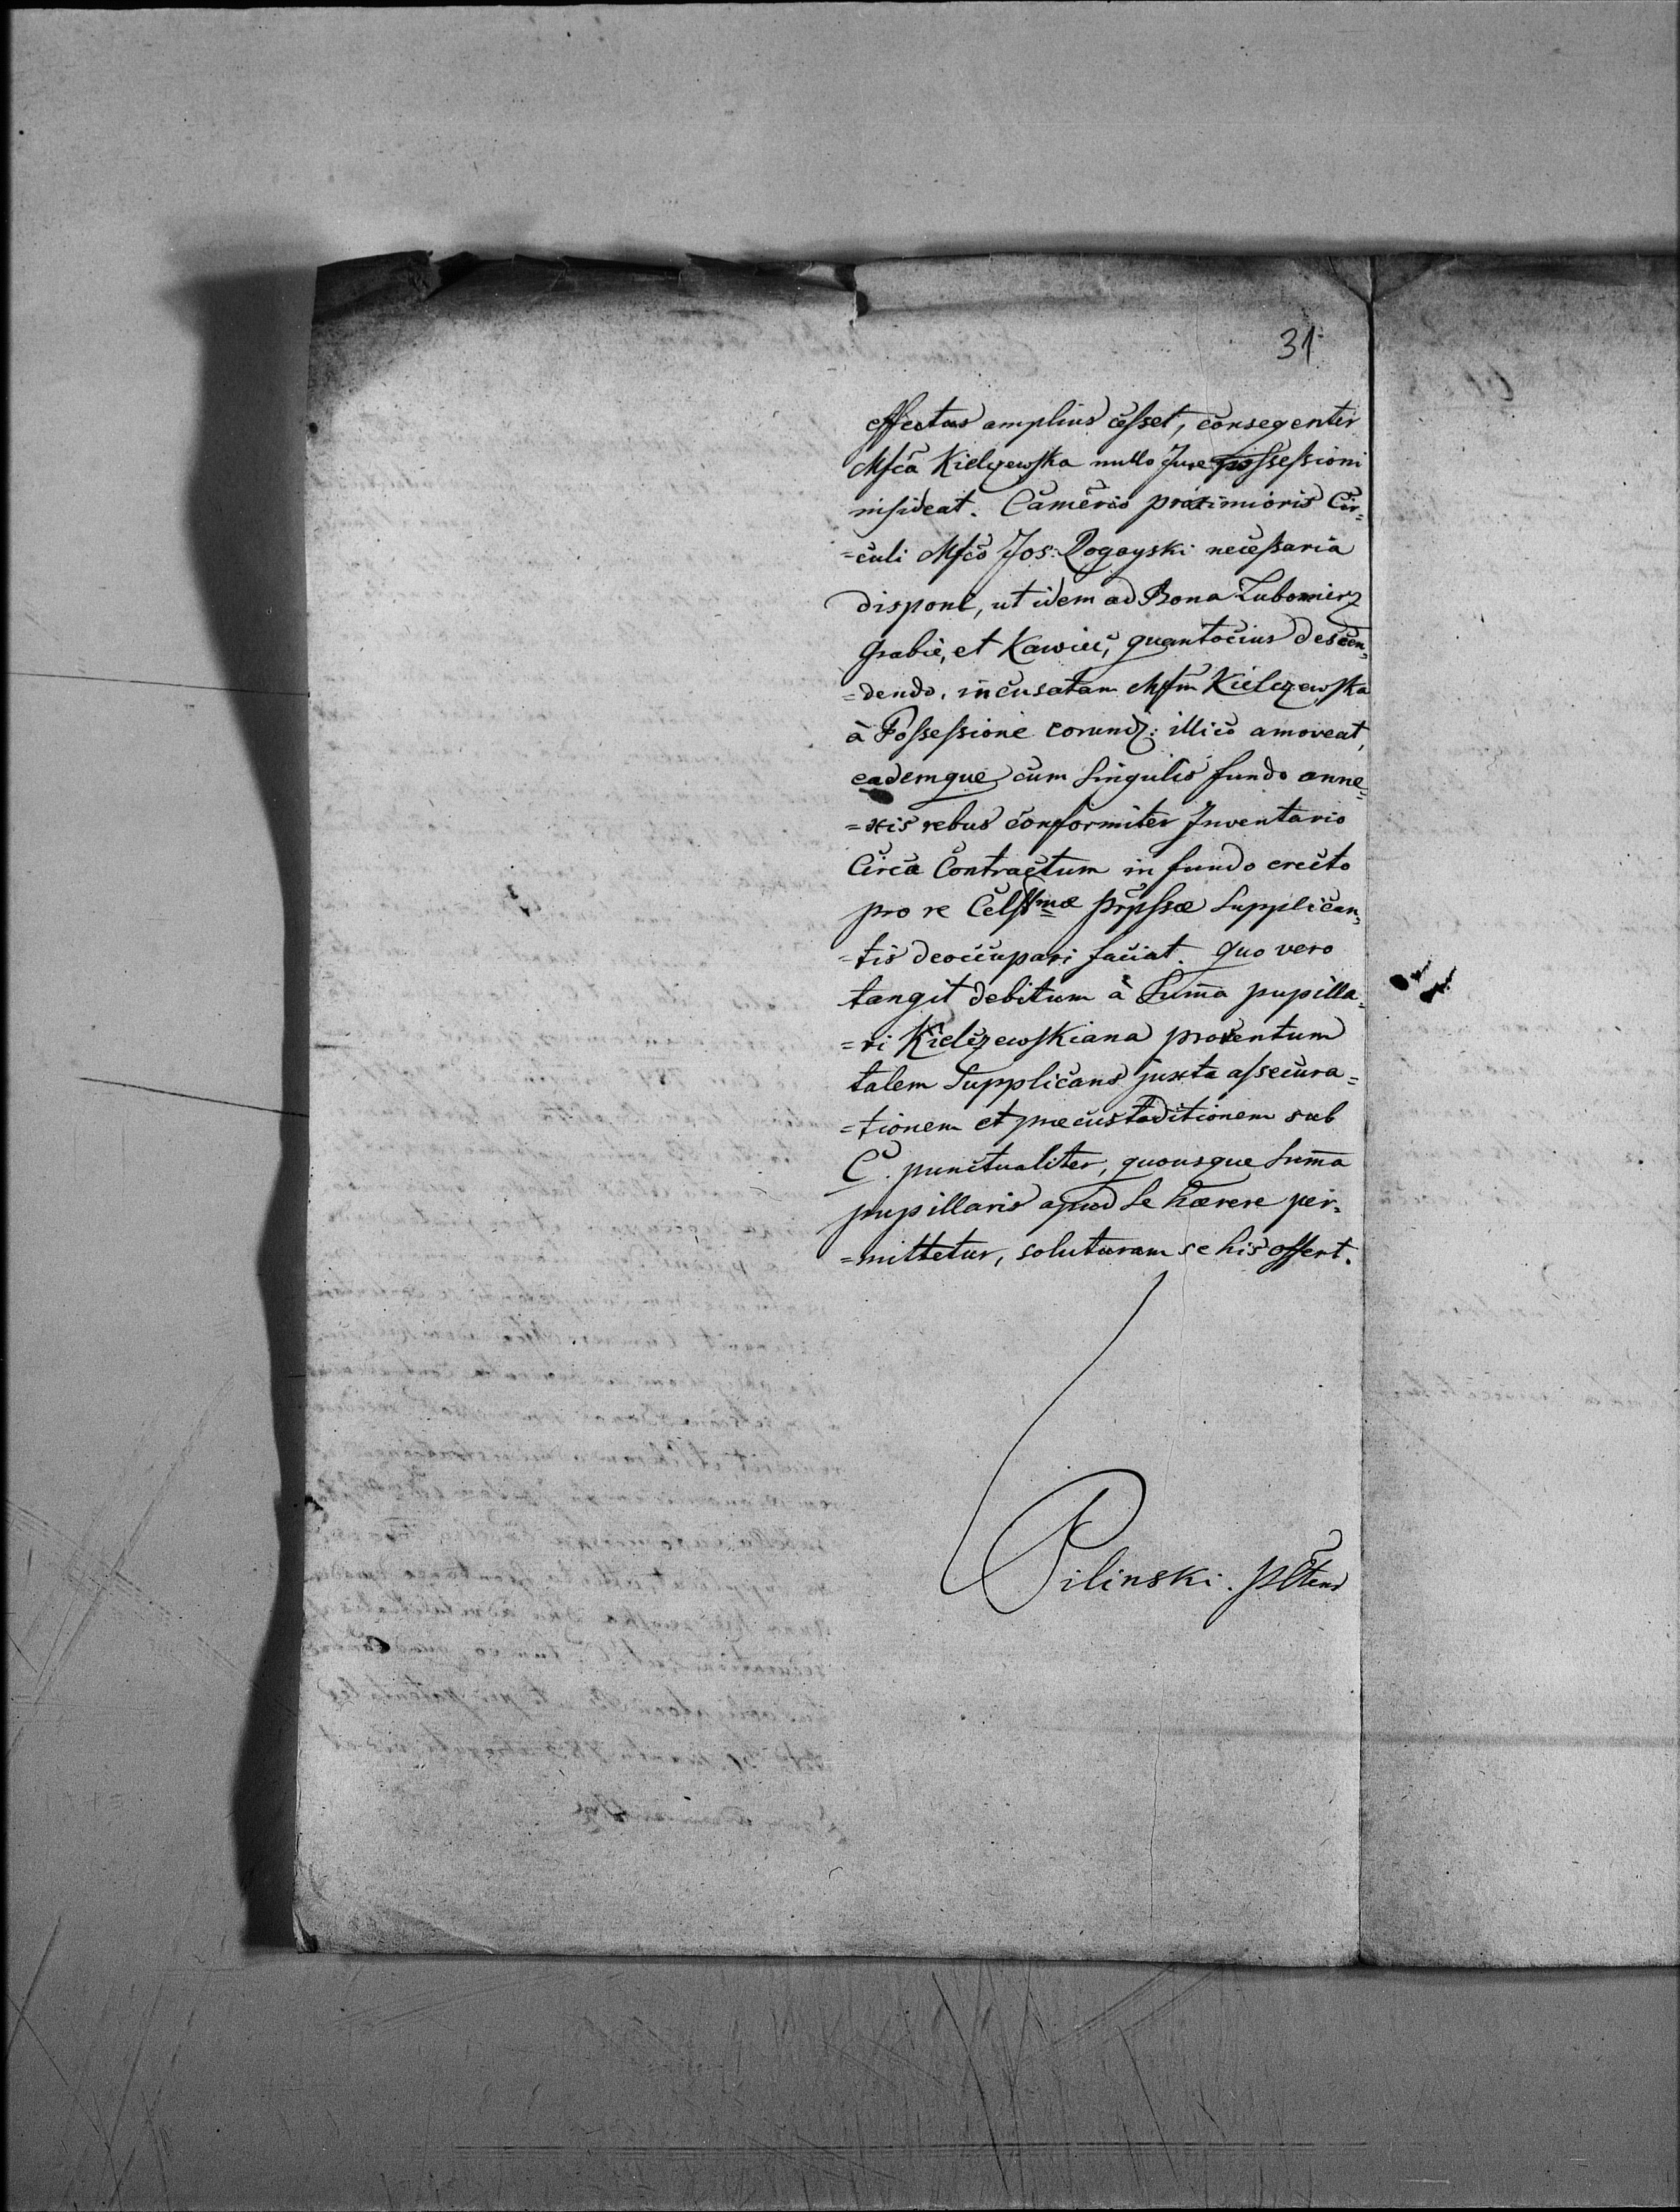 31
effectus amplius cesset, conseqenter
Mfca Kielczewska nullo Jure possessioni
insideat. Camerio proximioris Cir=
=culi Mfco Jos: Rogoyski necessaria
disponi, ut idem ad Bona Lubomierz
Grabie, et Kawiec, quantocius descen=
=dendo, incusatam Mfm Kielczewska
à Possessione eorund: illico amoveat,
eademque cum singulis fundo anne=
=xis rebus conformiter Inventario
Circa Contractum in fundo erecto
pro re Celssmae Prpssae Supplican=
=tis deoccupari faciat. Quo vero
tangit debitum à Summa pupilla=
=ri Kielczewskiana proventum
talem Supplicans juxta assecura=
=tionem et praecustoditionem sub
C. punctualiter, quousque Summa
pupillaris apud Se haerere per=
=mittetur, soluturam se his offert.
Pilinski. Pltens